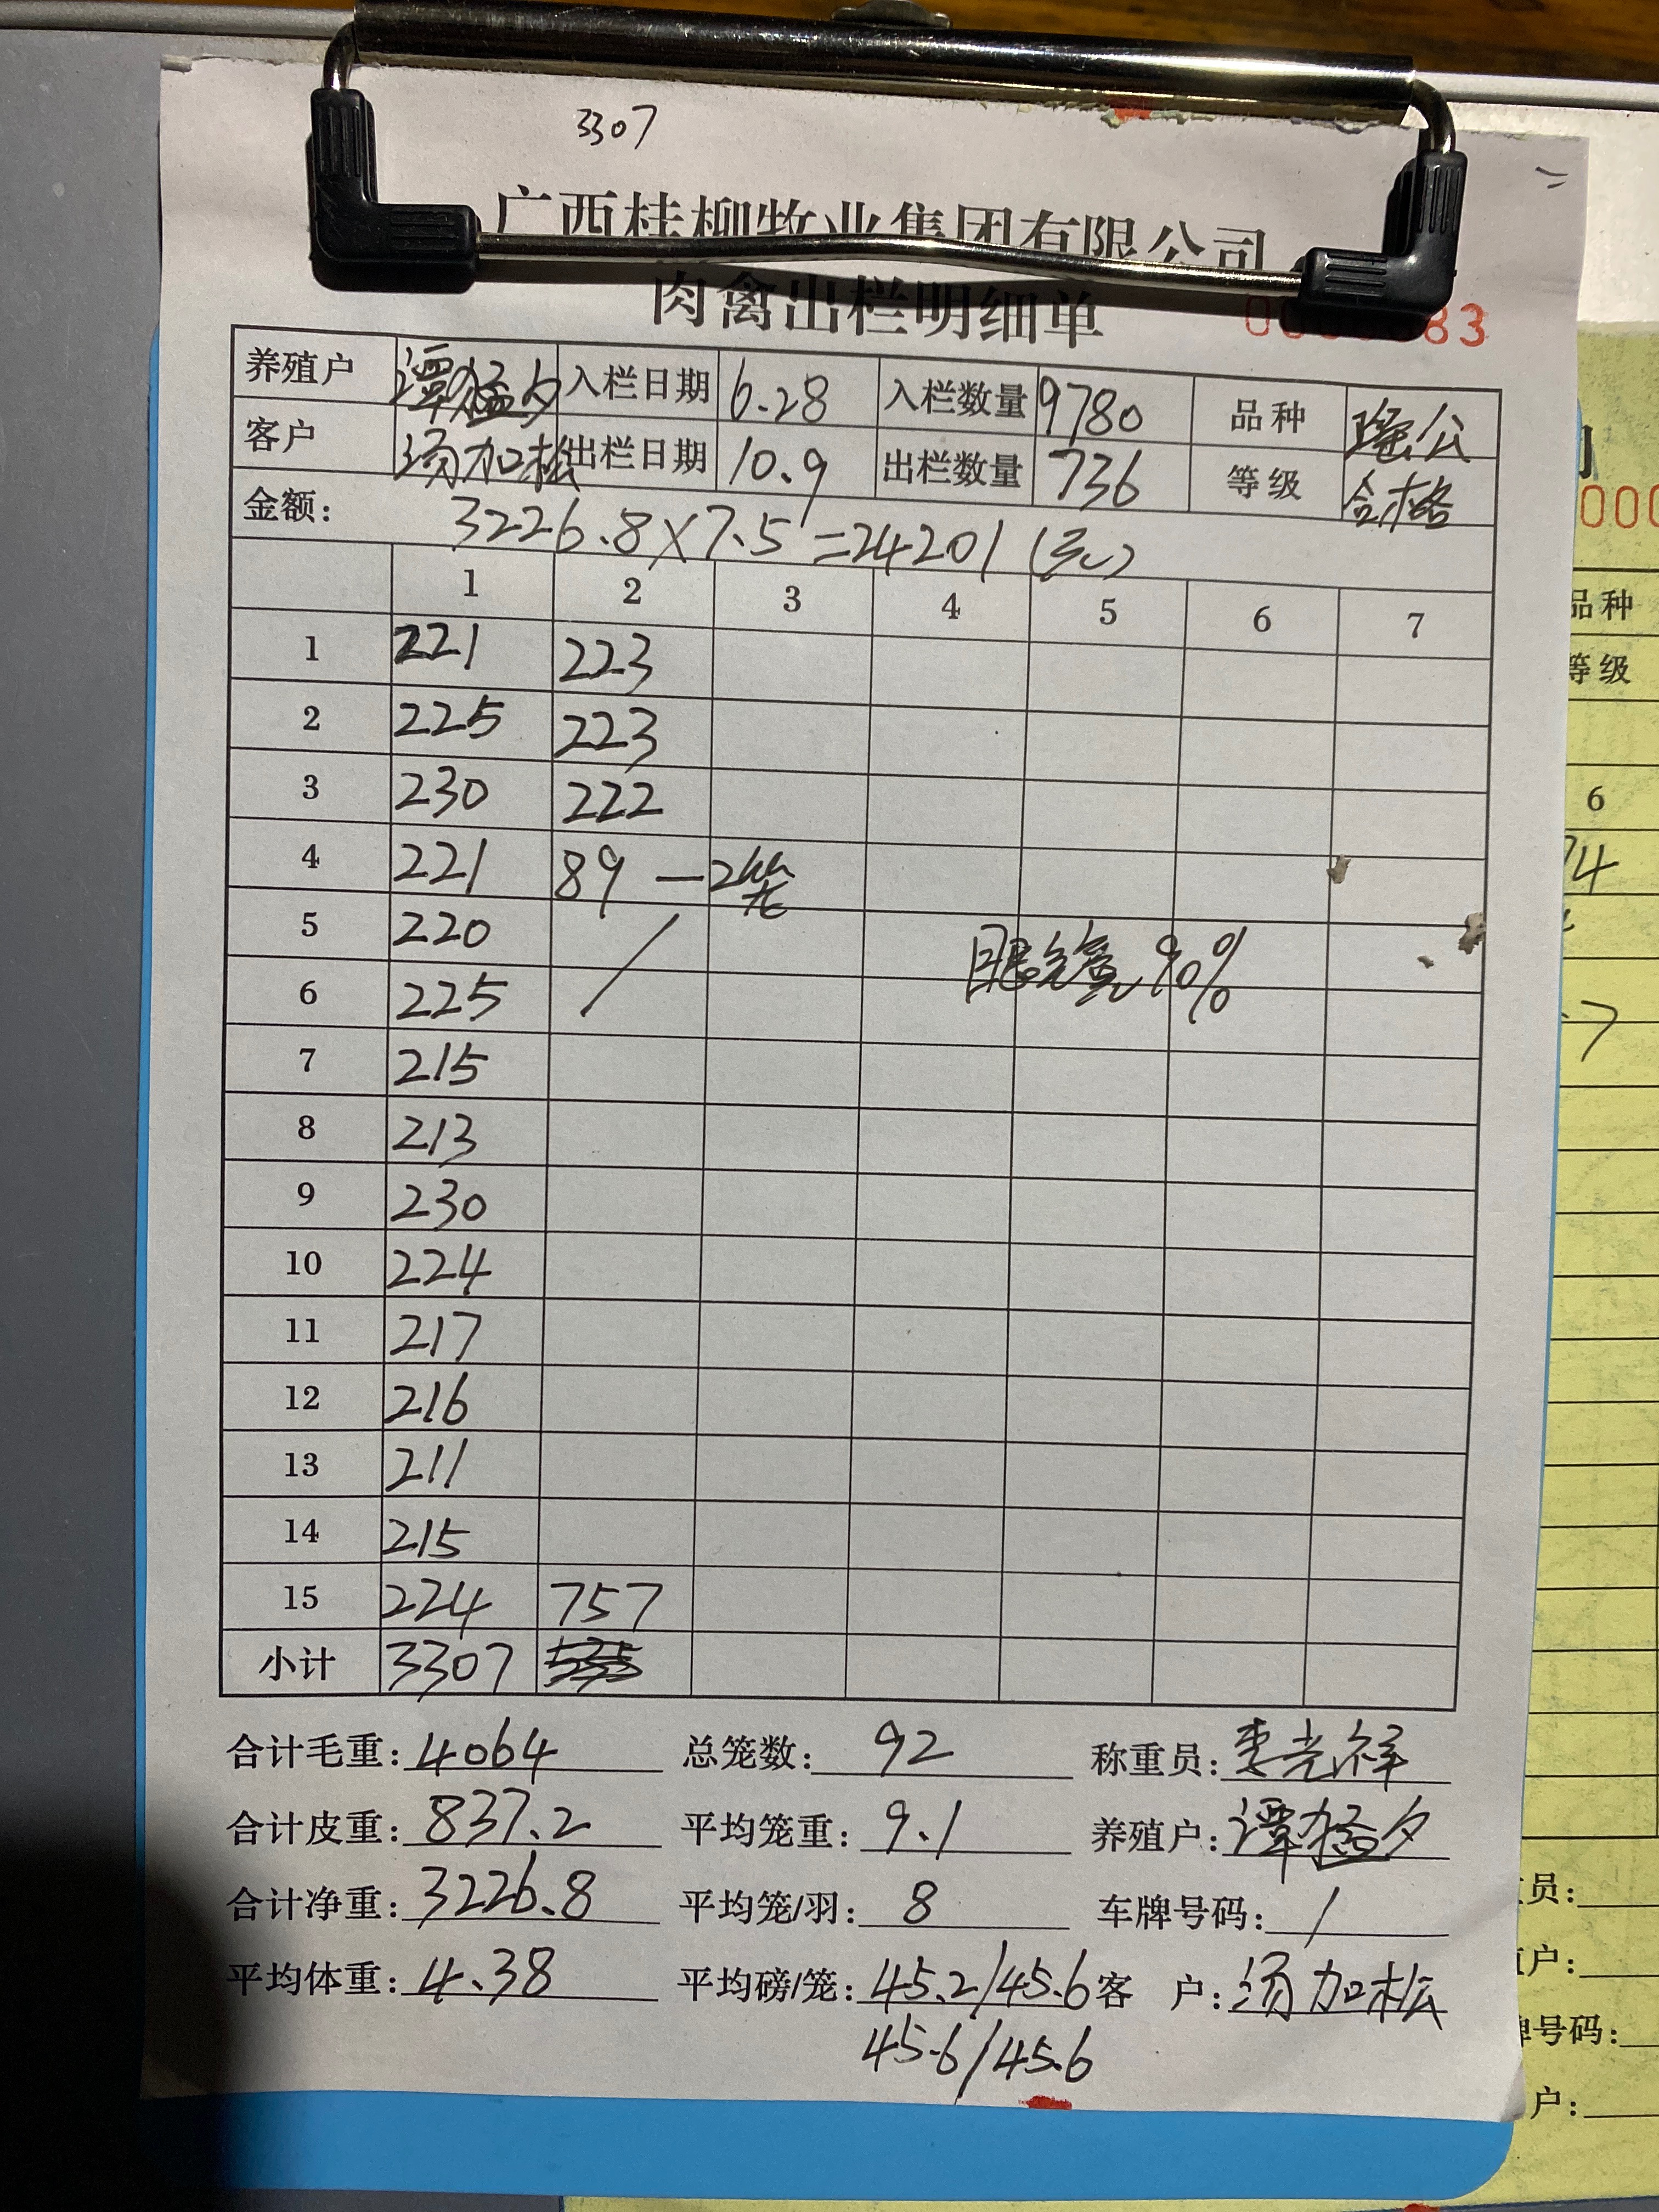 3307
广西桂柳牧业集团有限公司
肉禽出栏明细单
83
养殖户 入栏日期 6.28 入栏数量 9780 品种 瑶公
客户 汤加松 出栏日期 10.9 出栏数量 736 等级 合格
金额: 3226.8×7.5=24201(元)
1 2 3 4 5 6 7
1 221 223
2 225 223
3 230 222
4 221 89 —2笼
5 220 /
眼光亮90%
6 225
7 215
8 213
9 230
10 224
11 217
12 216
13 211
14 215
15 224 757
小计 3307
合计毛重: 4064 总笼数: 92 称重员: 李光祥
合计皮重: 837.2 平均笼重: 9.1 养殖户:
合计净重: 3226.8 平均笼/羽: 8 车牌号码: /
平均体重: 4.38 平均磅/笼: 45.2/45.6 客 户: 汤加松
45.6/45.6
000
品种
等级
6
74
7
员:
户:
牌号码:
户: